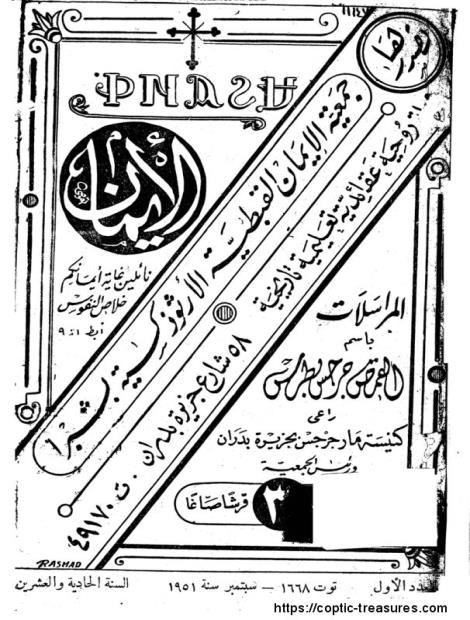 تصدرها
ⲪⲚⲀϨϮ
الإيمان
نائلين غاية أيمانكم
خلاص النفوس
١ بط ١ : ٩
جمعية الإيمان القبطية الأرثوذكسية بشبرا
روحية عقائدية تعليمية تاريخية
٥٨ شارع جزيرة بدران . ت ٤٩١٧٠
المراسلات
باسم
القمص جرجس بطرس
راعى
كنيسة مارجرجس بجزيرة بدران
ورئيس الجمعية
٣ قرشا صاغا
RASHAD
العدد الأول توت ١٦٦٨ – سبتمبر سنة ١٩٥١ السنة الحادية والعشرين
https://coptic-treasures.com